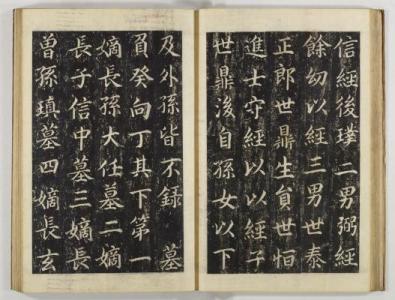 信經後璞二男弼經
餘幼以經三男世泰
正郎世鼎生貟世恒
進士守經以以經子
世鼎後自孫女以下
及外孫皆不錄　墓
負癸向丁其下第一
嫡長孫大任墓二嫡
長子信中墓三嫡長
曽孫瑱墓四嫡長玄